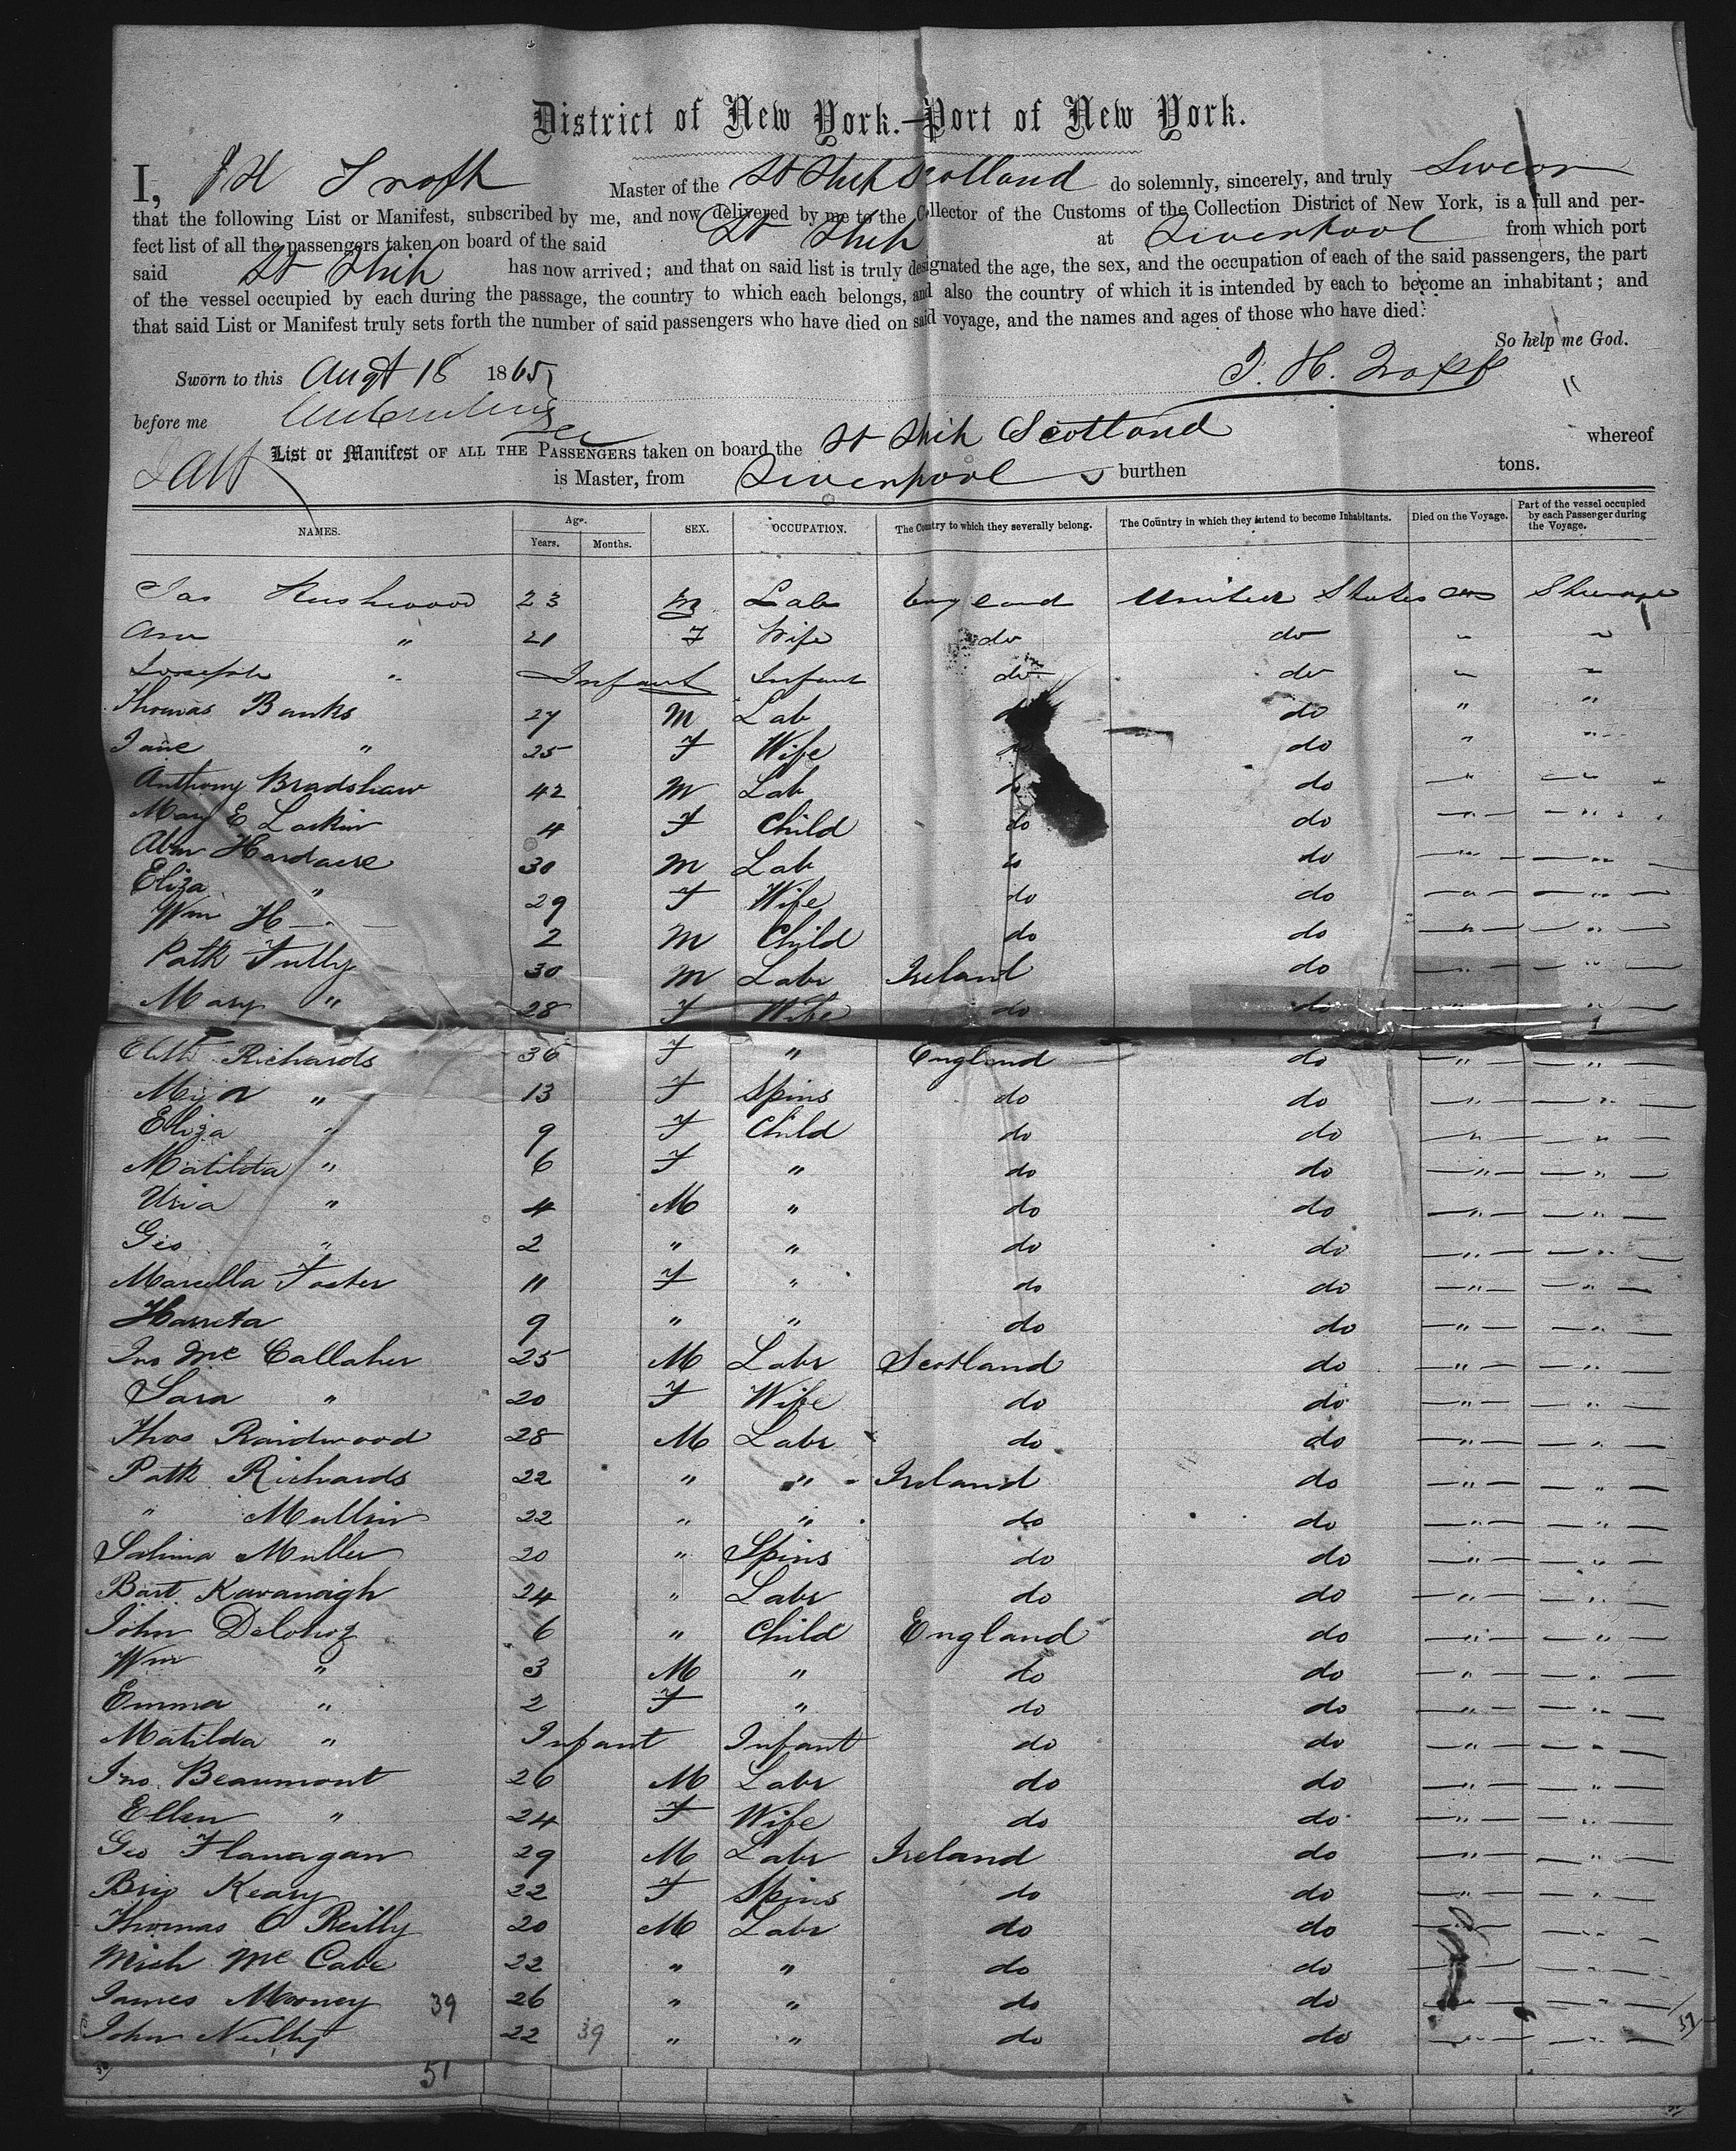 District of New York.—Port of New York.
I, J H Trapp Master of the St Ship Scotland do solemnly, sincerely, and truly Swear
that the following List or Manifest, subscribed by me, and now delivered by me to the Collector of the Customs of the Collection District of New York, is a full and per-
fect list of all the passengers taken on board of the said St Ship at Liverpool from which port
said St Ship has now arrived; and that on said list is truly designated the age, the sex, and the occupation of each of the said passengers, the part
of the vessel occupied by each during the passage, the country to which each belongs, and also the country of which it is intended by each to become an inhabitant; and
that said List or Manifest truly sets forth the number of said passengers who have died on said voyage, and the names and ages of those who have died.
So help me God.
Sworn to this Augt 18 1865 J. H. Trapp
before me
List or Manifest OF ALL THE PASSENGERS taken on board the St Ship Scotland whereof
is Master, from Liverpool burthen tons.
NAMES. Age. Years. Months. SEX. OCCUPATION. The Country to which they severally belong. The Country in which they intend to become Inhabitants. Died on the Voyage. Part of the vessel occupied by each Passenger during the Voyage.
Jas Rushwood 23 M Lab England United States Steerage
Ann " 21 F Wife do do " "
Joseph " Infant Infant do do " "
Thomas Banks 27 M Lab do do " "
Jane " 25 F Wife do do " "
Anthony Bradshaw 42 M Lab do do " "
Mary E Larkin 4 F Child do do " "
Abm Hardacre 30 M Lab do do " "
Eliza " 29 F Wife do do " "
Wm H — 2 M Child do do " "
Patk Tully 30 M Labr Ireland do " "
Mary " 28 F Wife do do " "
Elith Richards 36 F " England do " "
" 13 F Spins do do " "
Eliza " 9 F Child do do " "
Matilda " 6 F " do do " "
Uria " 4 M " do do " "
Geo " 2 " " do do " "
Marcella Foster 11 F " do do " "
Harreta 9 " " do do " "
Jno Mc Callaher 25 M Labr Scotland do " "
Sara " 20 F Wife do do " "
Thos Raidwood 28 M Labr do do " "
Patk Richards 22 " " Ireland do " "
" Mullin 22 " " do do " "
Salina Muller 20 " Spins do do " "
Bart. Kavanaigh 24 " Labr do do " "
John 6 " Child England do " "
Wm " 3 M " do do " "
Emma " 2 F " do do " "
Matilda " Infant Infant do do " "
Jno. Beaumont 26 M Labr do do " "
Ellen " 24 F Wife do do " "
Geo Flanagan 29 M Labr Ireland do " "
Brid Keary 22 F Spins do do " "
Thomas O Reilly 20 M Labr do do " "
Mich Mc Cabe 22 " " do do " "
James Mooney 39 26 " " do do " "
John Nulty 22 39 " " do do " "
51